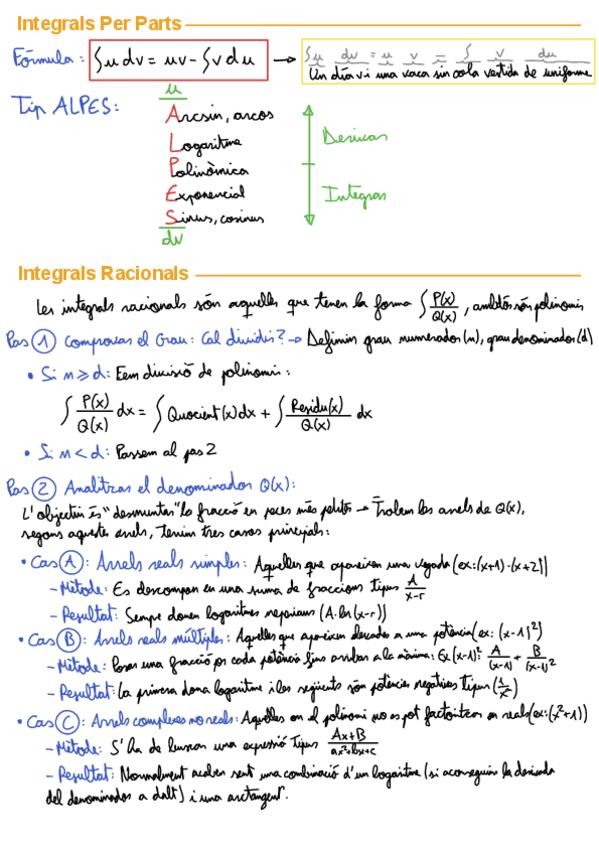 Integrals Per Parts
Fórmula: ∫u dv = uv - ∫v du → ∫u dv = u v = ∫ v du
Un día vi una vaca sin cola vestida de uniforme
Tip ALPES:
u
Arcsin, arcos
Logaritme
Polinòmica
Exponencial
Sinus, cosinus
dv
Derivar
Integrar
Integrals Racionals
Les integrals racionals són aquelles que tenen la forma ∫ P(x)/Q(x), ambdós són polinomis
Pas 1 Comprovar el Grau: Cal dividir? → Definim grau numerador (n), grau denominador (d)
• Si n ≥ d: Fem divisió de polinomis:
∫ P(x)/Q(x) dx = ∫ Quocient(x) dx + ∫ Residu(x)/Q(x) dx
• Si n < d: Passem al pas 2
Pas 2 Analitzar el denominador Q(x):
L'objectiu és "desmuntar" la fracció en peces més petites → Trobem les arrels de Q(x),
segons aquestes arrels, tenim tres casos principals:
• Cas A: Arrels reals simples: Aquelles que apareixen una vegada (ex: (x+1)·(x+2))
- Mètode: Es descompon en una suma de fraccions tipus A/x-r
- Resultat: Sempre donen logaritmes neperians (A·ln(x-r))
• Cas B: Arrels reals múltiples: Aquelles que apareixen elevades a una potència (ex: (x-1)²)
- Mètode: Posar una fracció per cada potència fins arribar a la màxima: Ex (x-1)² A/(x-1) + B/(x-1)²
- Resultat: La primera dona logaritme i les següents són potències negatives tipus (1/x²)
• Cas C: Arrels complexes no reals: Aquelles on el polinomi no es pot factoritzar en reals (ex: (x²+1))
- Mètode: S'ha de buscar una expressió tipus Ax+B/ax²+bx+c
- Resultat: Normalment acaben sent una combinació d'un logaritme (si aconseguim la derivada
del denominador a dalt) i una arctangent.